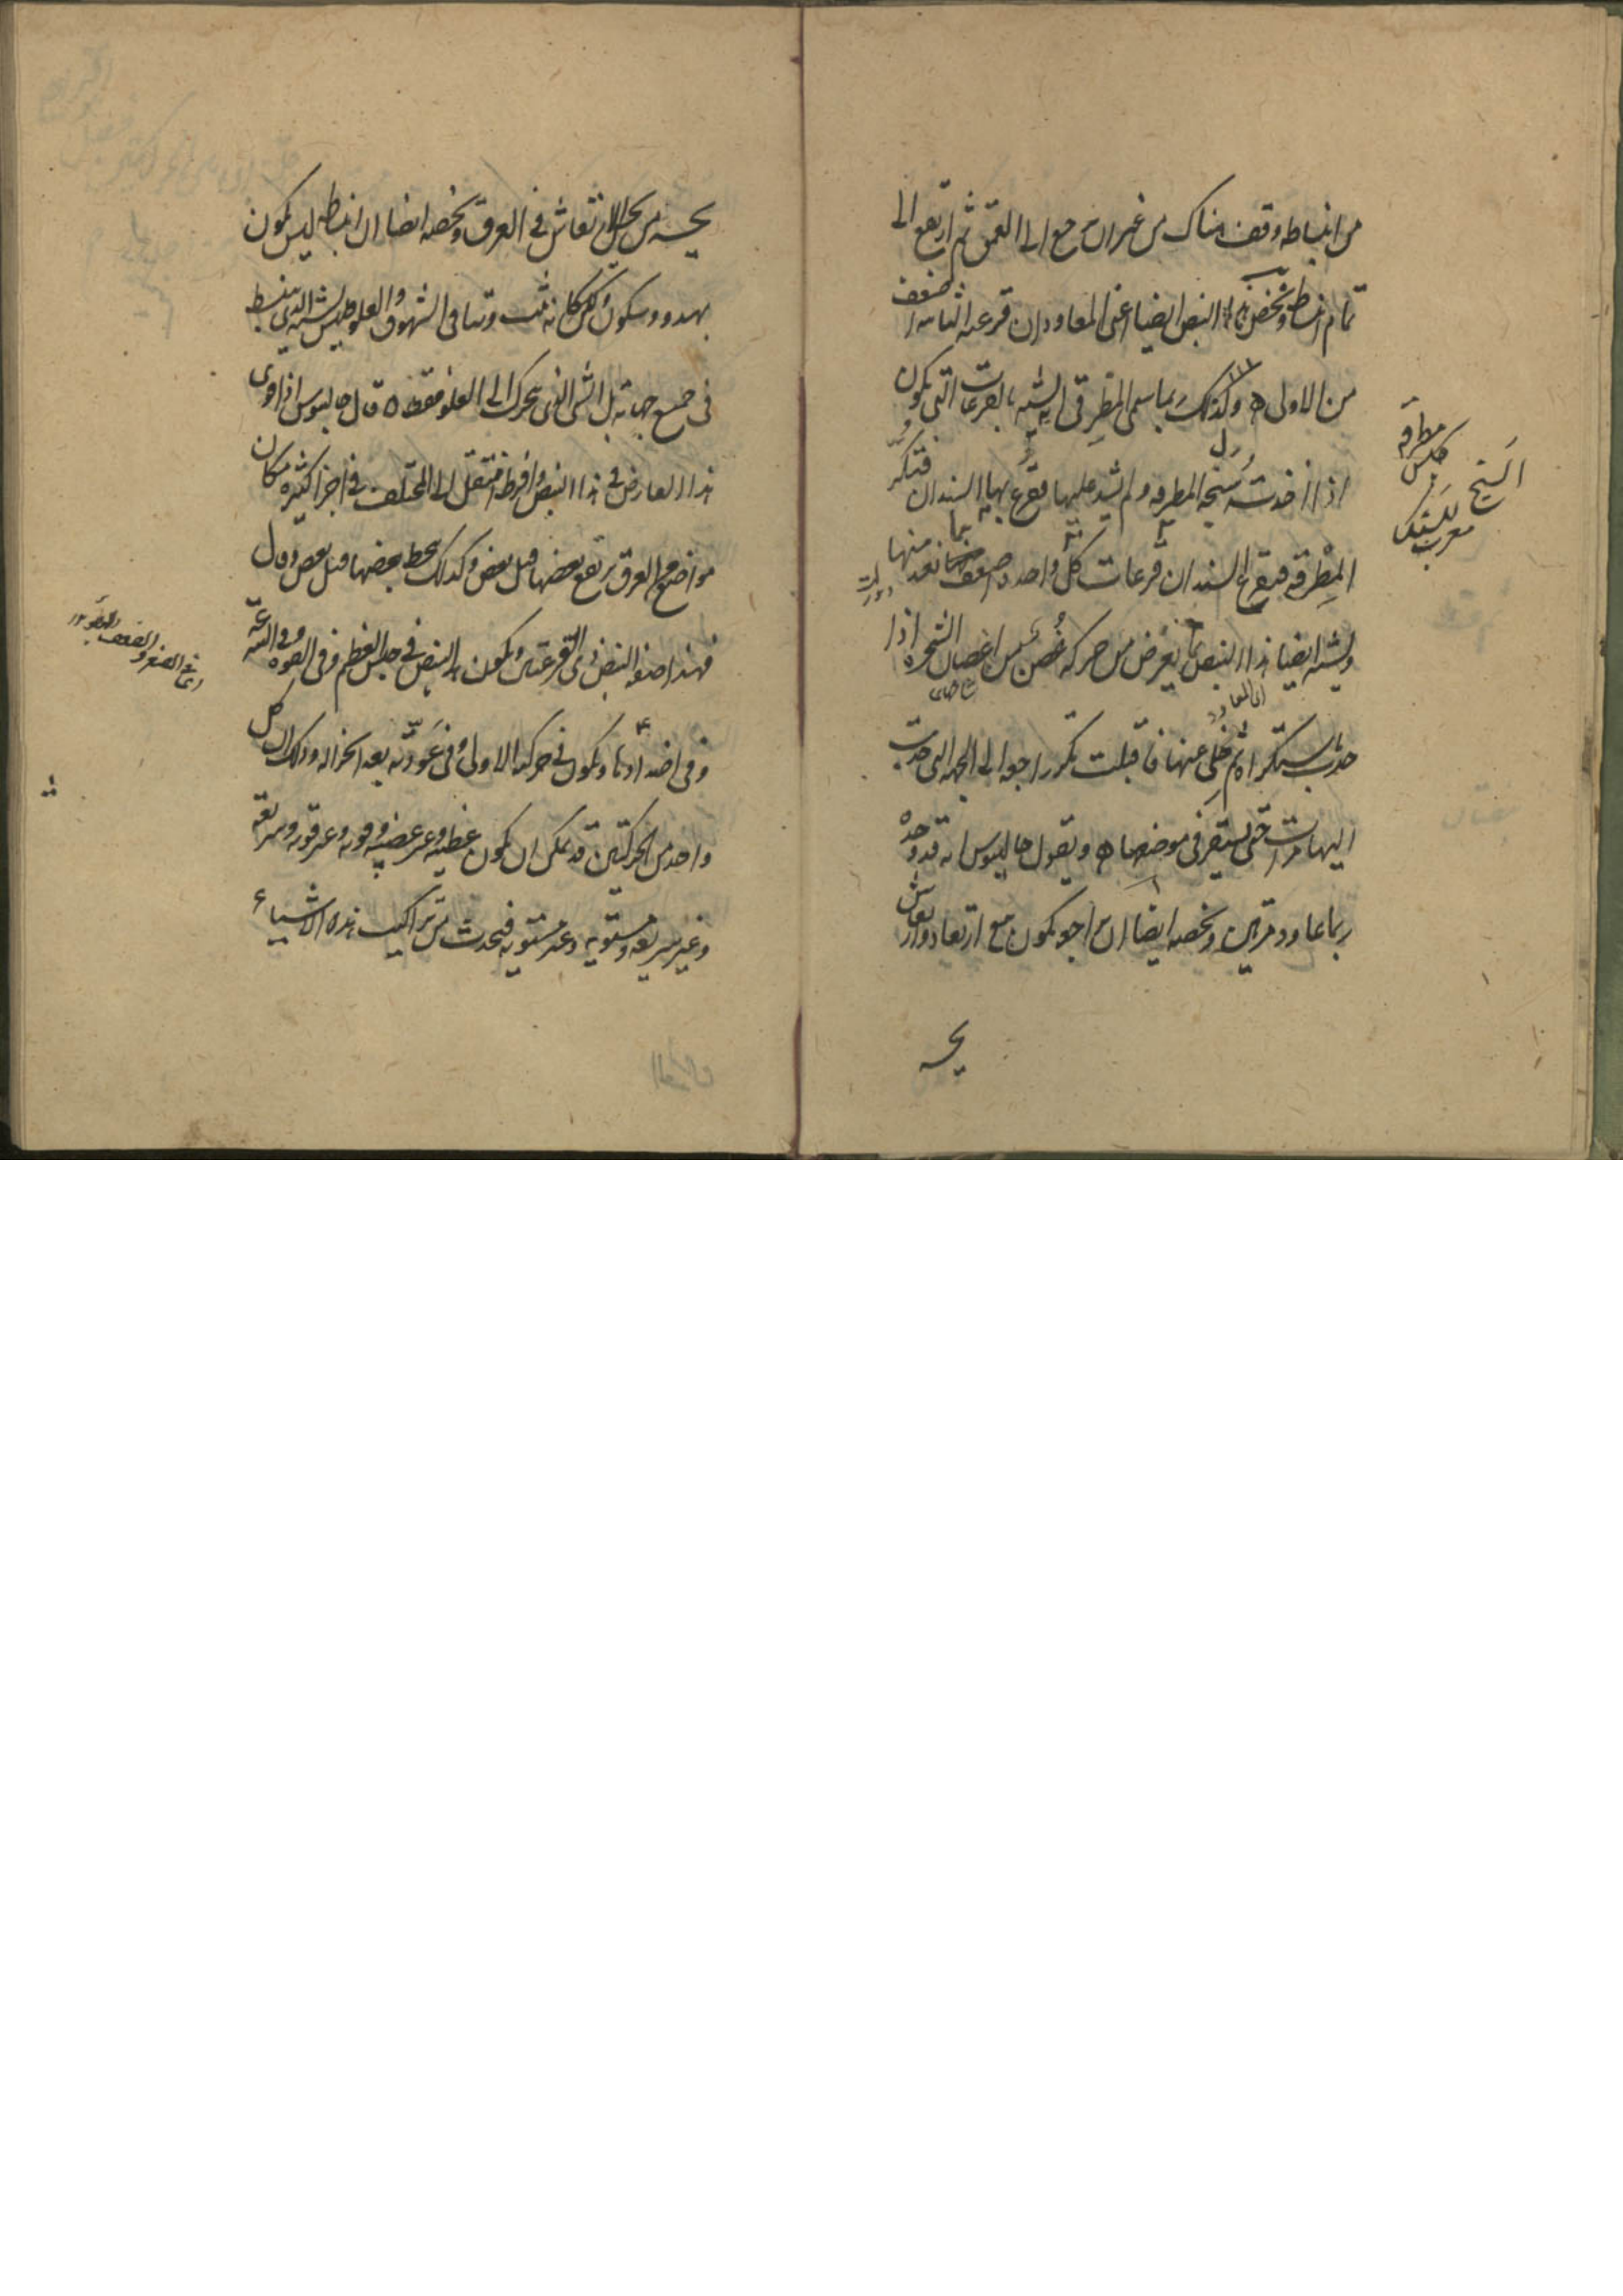 من انبساطه وقف هناك من غير ان يرجع الى العمق ثم ارتفع الى
تمام انبساطه ويخص هذا النبض ايضا اعنى المعاود ان قرعته الثانية اضعف
من الاولى وكذلك ربما سمى المطرقى لانه يشبه بالقرعات التى تكون
اذا اخذت سنجة المطرقة ولم يشد عليها فقرع بها السندان فتكر
المطرقة فتقرع السندان قرعات كل واحدة اضعف مما تقدمها
ويشبه ايضا هذا النبض بما يعرض من حركة غصن من اغصان الشجرة اذا
جذب باستكراه ثم خلى عنها فاقبلت تكر راجعة الى الجهة التى جذبت
اليها مرات حتى يستقر فى موضعها ويقول جالينوس انه قد وجده
ربما عاود مرتين ويخصه ايضا ان يكون مع ارتعاد وارتعاش
يحسه
مطرقة
الشيخ
معرب
يحسه من يحس الارتعاش فى العرق ويخصه ايضا ان انبساطه ليس يكون
بهدوء وسكون لكن كانه يثب وتنافى الشهوق والعلو فليس يشبه الذى ينبسط
فى جميع جهاته بل الشى الذى يتحرك الى العلو فقط قال جالينوس اذا قوى
هذا العارض فى هذا النبض وافرط انتقل الى المختلف فى اجزا كثيرة فكان
مواضع العرق يرتفع بعضها قبل بعض وكذلك ينحط بعضها قبل بعض وقال
فهذا صفة النبض ذى القرعتين ويكون هذا النبض فى جنس العظم وفى القوة وفى السرعة
وفى اضدادها ويكون فى حركته الاولى وفى عودته بعد انخزاله وذلك ان كل
واحد من الحركتين قد يمكن ان يكون عظيمة وغير عظيمة وقوية وغير قوية وسريعة
وغير سريعة ومستوية وغير مستوية فيحدث من تراكيب هذه الاشياء
اى فى الصغر والضعف